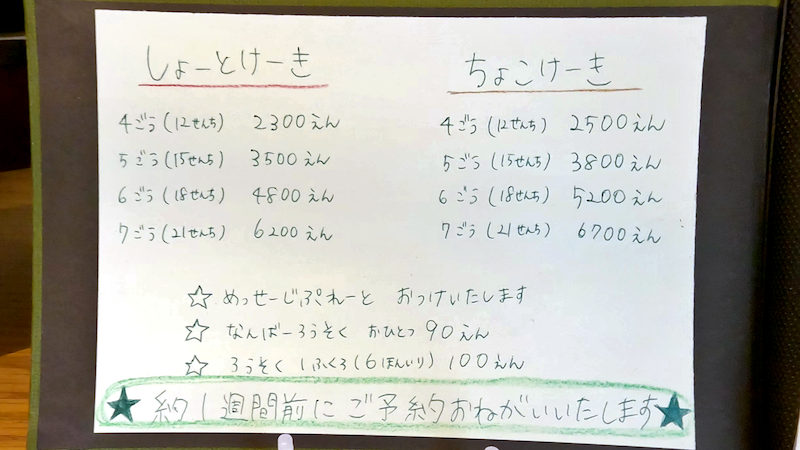 しょーとけーき
4ごう(12せんち) 2300えん
5ごう(15せんち) 3500えん
6ごう(18せんち) 4800えん
7ごう(21せんち) 6200えん
ちょこけーき
4ごう(12せんち) 2500えん
5ごう(15せんち) 3800えん
6ごう(18せんち) 5200えん
7ごう(21せんち) 6700えん
☆ めっせーじぷれーと おつけいたします
☆ なんばーろうそく おひとつ 90えん
☆ ろうそく 1ふくろ(6ほんいり) 100えん
★ 約1週間前にご予約おねがいいたします★